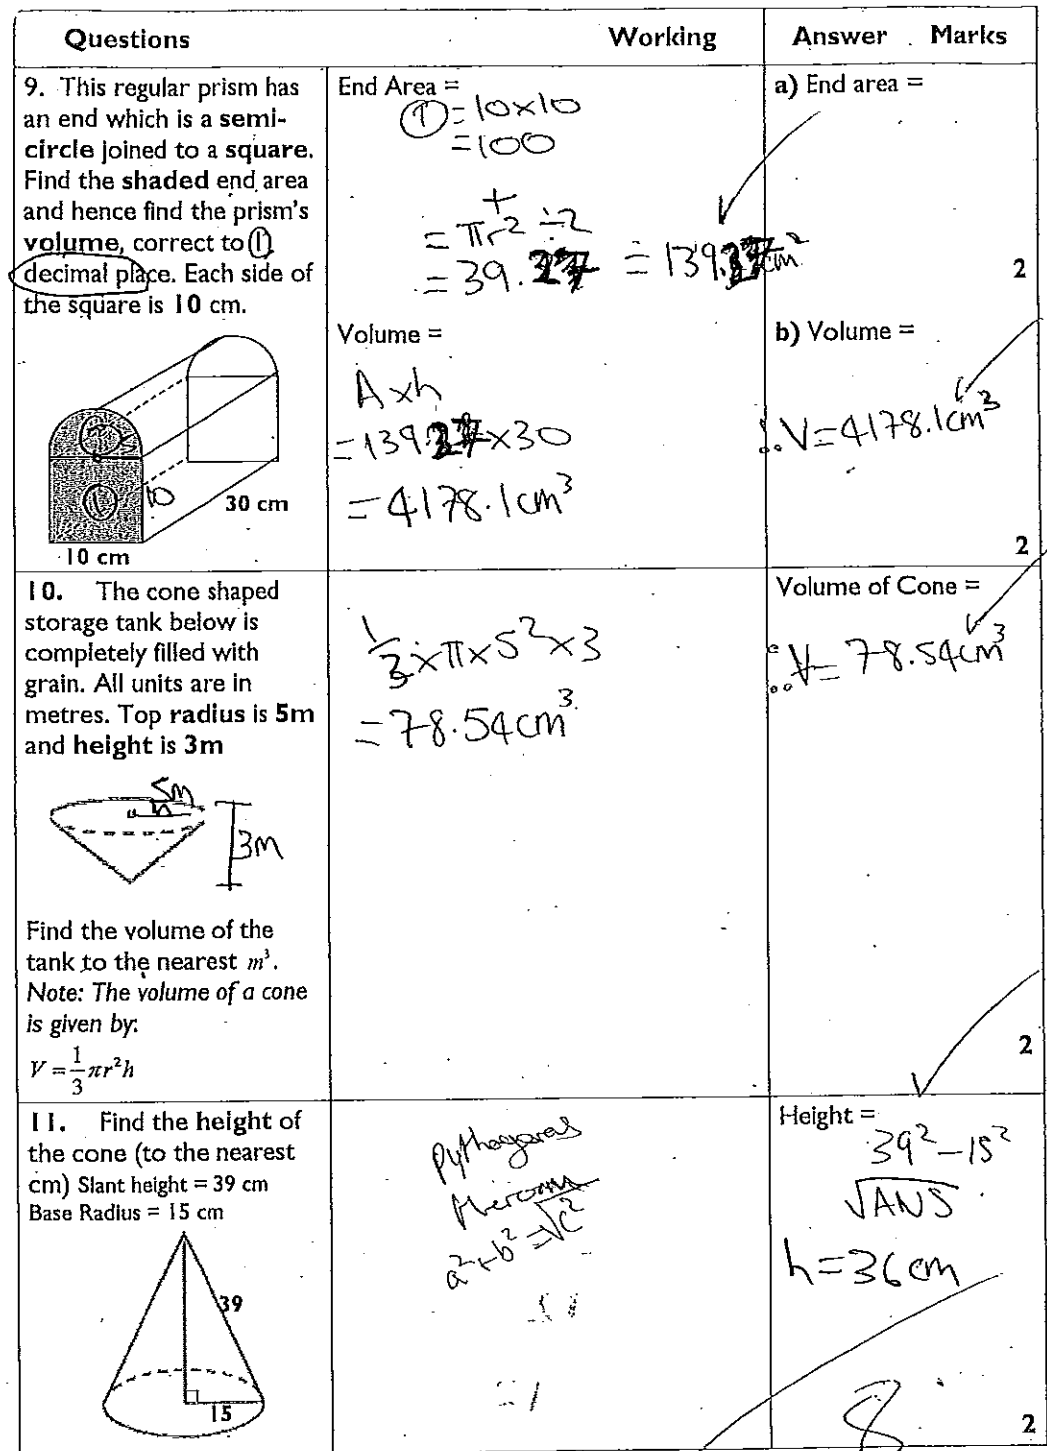 Questions Working Answer Marks
9. This regular prism has
an end which is a semi-
circle joined to a square.
Find the shaded end area
and hence find the prism's
volume, correct to 1
decimal place. Each side of
the square is 10 cm.
10
30 cm
10 cm
End Area =
① = 10×10
= 100
+
= πr² ÷2
= 39.27 = 139.27cm²
Volume =
A×h
= 139.27×30
= 4178.1cm³
a) End area =
2
b) Volume =
∴V=4178.1cm³
2
10. The cone shaped
storage tank below is
completely filled with
grain. All units are in
metres. Top radius is 5m
and height is 3m
5m
3m
Find the volume of the
tank to the nearest m³.
Note: The volume of a cone
is given by:
V = 1/3 πr²h
1/3 ×π×5²×3
=78.54cm³
Volume of Cone =
∴V= 78.54cm³
2
11. Find the height of
the cone (to the nearest
cm) Slant height = 39 cm
Base Radius = 15 cm
39
15
Pythagoras
a²+b²=√c²
Height =
39²-15²
√ANS
h=36cm
8
2